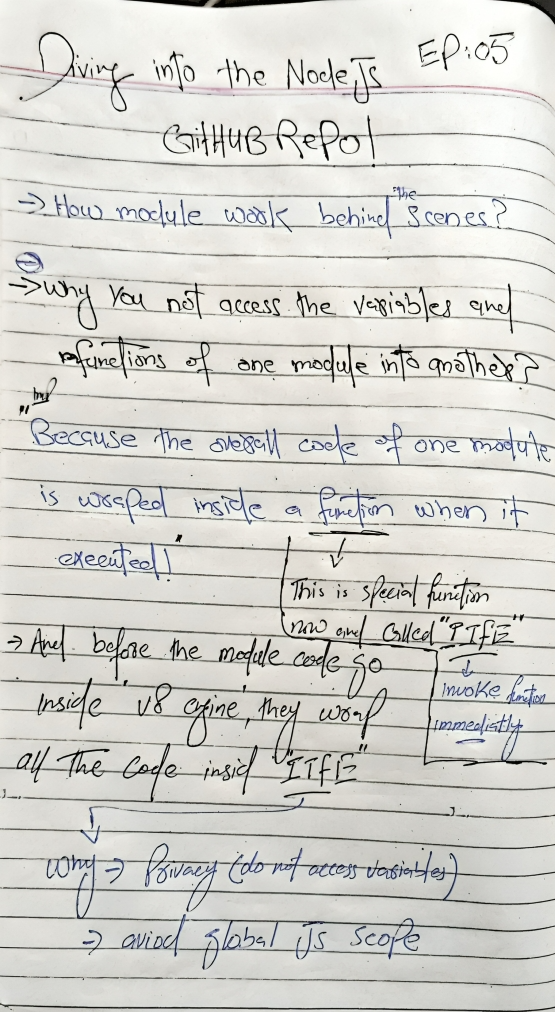 Diving into the Node Js EP:05
GitHUB Repo!
→ How module work behind the scenes?
→ why you not access the variables and
functions of one module into another?
"Because the overall code of one module
is wraped inside a function when it
executed!"
This is special function
now and called "IIFE"
→ And before the module code go
inside 'v8 egine', they wrap
invoke function
immediatly
all the code insid "IIFE"
why → Privacy (do not access variables)
→ aviod global Js scope